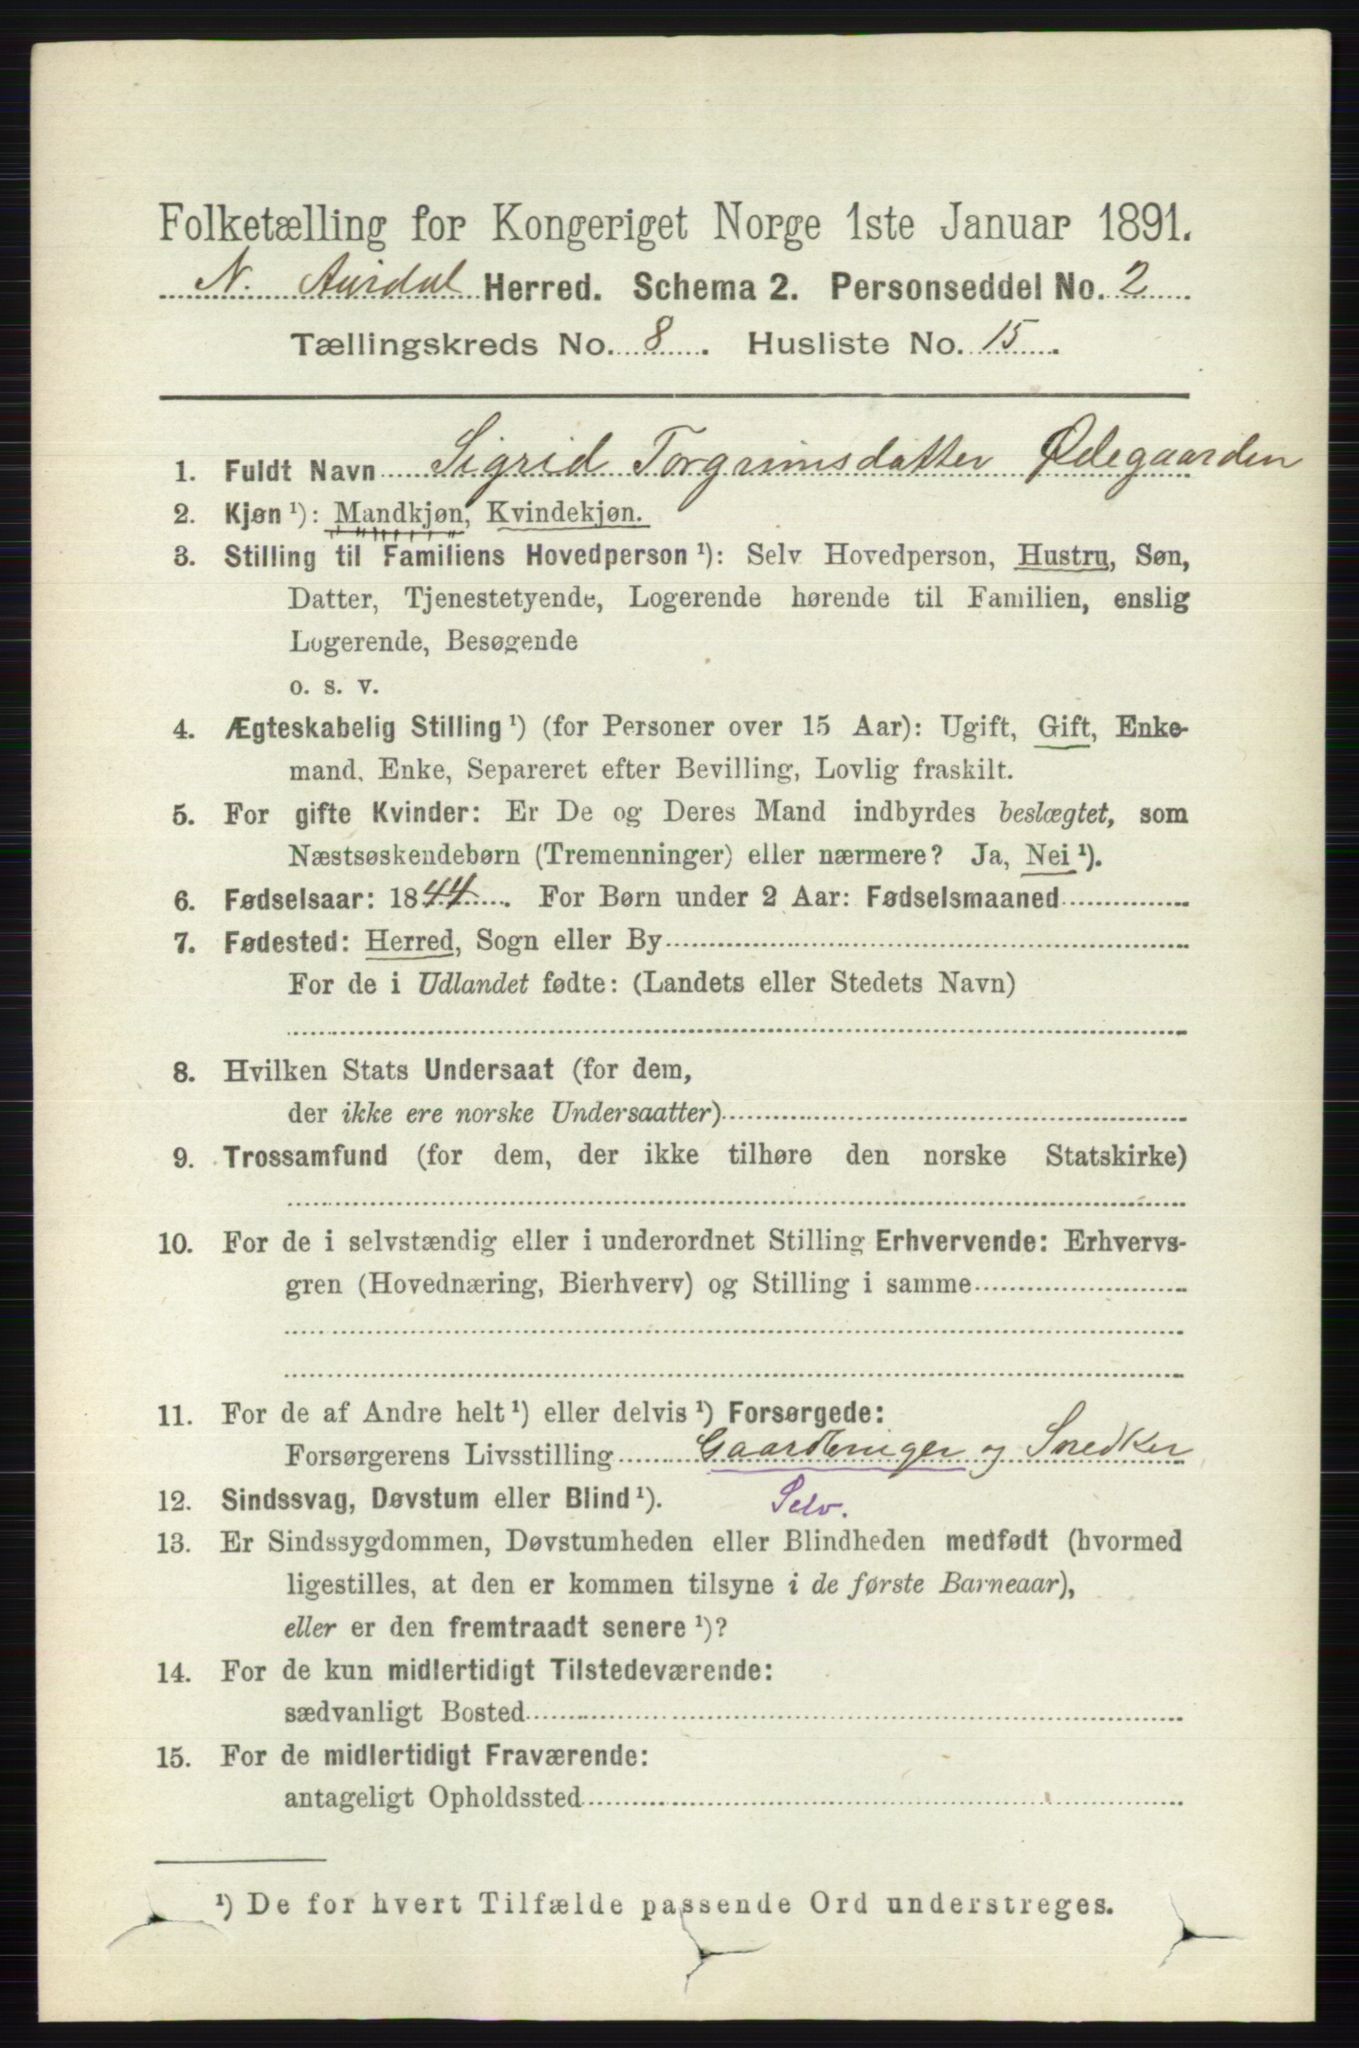 Folketælling for Kongeriget Norge 1ste Januar 1891.
N. Aurdal Herred. Schema 2. Personseddel No. 2
Tællingskreds No. 8. Husliste No. 15.
1. Fuldt Navn Sigrid Torgrimsdatter Ødegaarden
2. Kjøn ¹): Mandkjøn, Kvindekjøn.
3. Stilling til Familiens Hovedperson ¹): Selv Hovedperson, Hustru, Søn,
Datter, Tjenestetyende, Logerende hørende til Familien, enslig
Logerende, Besøgende
o. s. v.
4. Ægteskabelig Stilling ¹) (for Personer over 15 Aar): Ugift, Gift, Enke-
mand, Enke, Separeret efter Bevilling, Lovlig fraskilt.
5. For gifte Kvinder: Er De og Deres Mand indbyrdes beslægtet, som
Næstsøskendebørn (Tremenninger) eller nærmere? Ja, Nei ¹).
6. Fødselsaar: 1844. For Børn under 2 Aar: Fødselsmaaned
7. Fødested: Herred, Sogn eller By
For de i Udlandet fødte: (Landets eller Stedets Navn)
8. Hvilken Stats Undersaat (for dem,
der ikke ere norske Undersaatter)
9. Trossamfund (for dem, der ikke tilhøre den norske Statskirke)
10. For de i selvstændig eller i underordnet Stilling Erhvervende: Erhvervs-
gren (Hovednæring, Bierhverv) og Stilling i samme
11. For de af Andre helt ¹) eller delvis ¹) Forsørgede:
Forsørgerens Livsstilling Gaardbruger og Snedker
12. Sindssvag, Døvstum eller Blind ¹). Selv.
13. Er Sindssygdommen, Døvstumheden eller Blindheden medfødt (hvormed
ligestilles, at den er kommen tilsyne i de første Barneaar),
eller er den fremtraadt senere ¹)?
14. For de kun midlertidigt Tilstedeværende:
sædvanligt Bosted
15. For de midlertidigt Fraværende:
antageligt Opholdssted
¹) De for hvert Tilfælde passende Ord understreges.